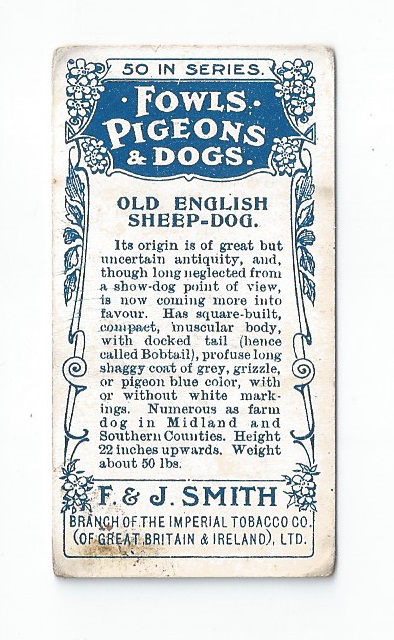 50 IN SERIES.
FOWLS.
PIGEONS
& DOGS.
OLD ENGLISH
SHEEP-DOG.
Its origin is of great but
uncertain antiquity, and,
though long neglected from
a show-dog point of view,
is now coming more into
favour. Has square-built,
compact, muscular body,
with docked tail (hence
called Bobtail), profuse long
shaggy coat of grey, grizzle,
or pigeon blue color, with
or without white mark-
ings. Numerous as farm
dog in Midland and
Southern Counties. Height
22 inches upwards. Weight
about 50 lbs.
F. & J. SMITH
BRANCH OF THE IMPERIAL TOBACCO CO.
(OF GREAT BRITAIN & IRELAND), LTD.